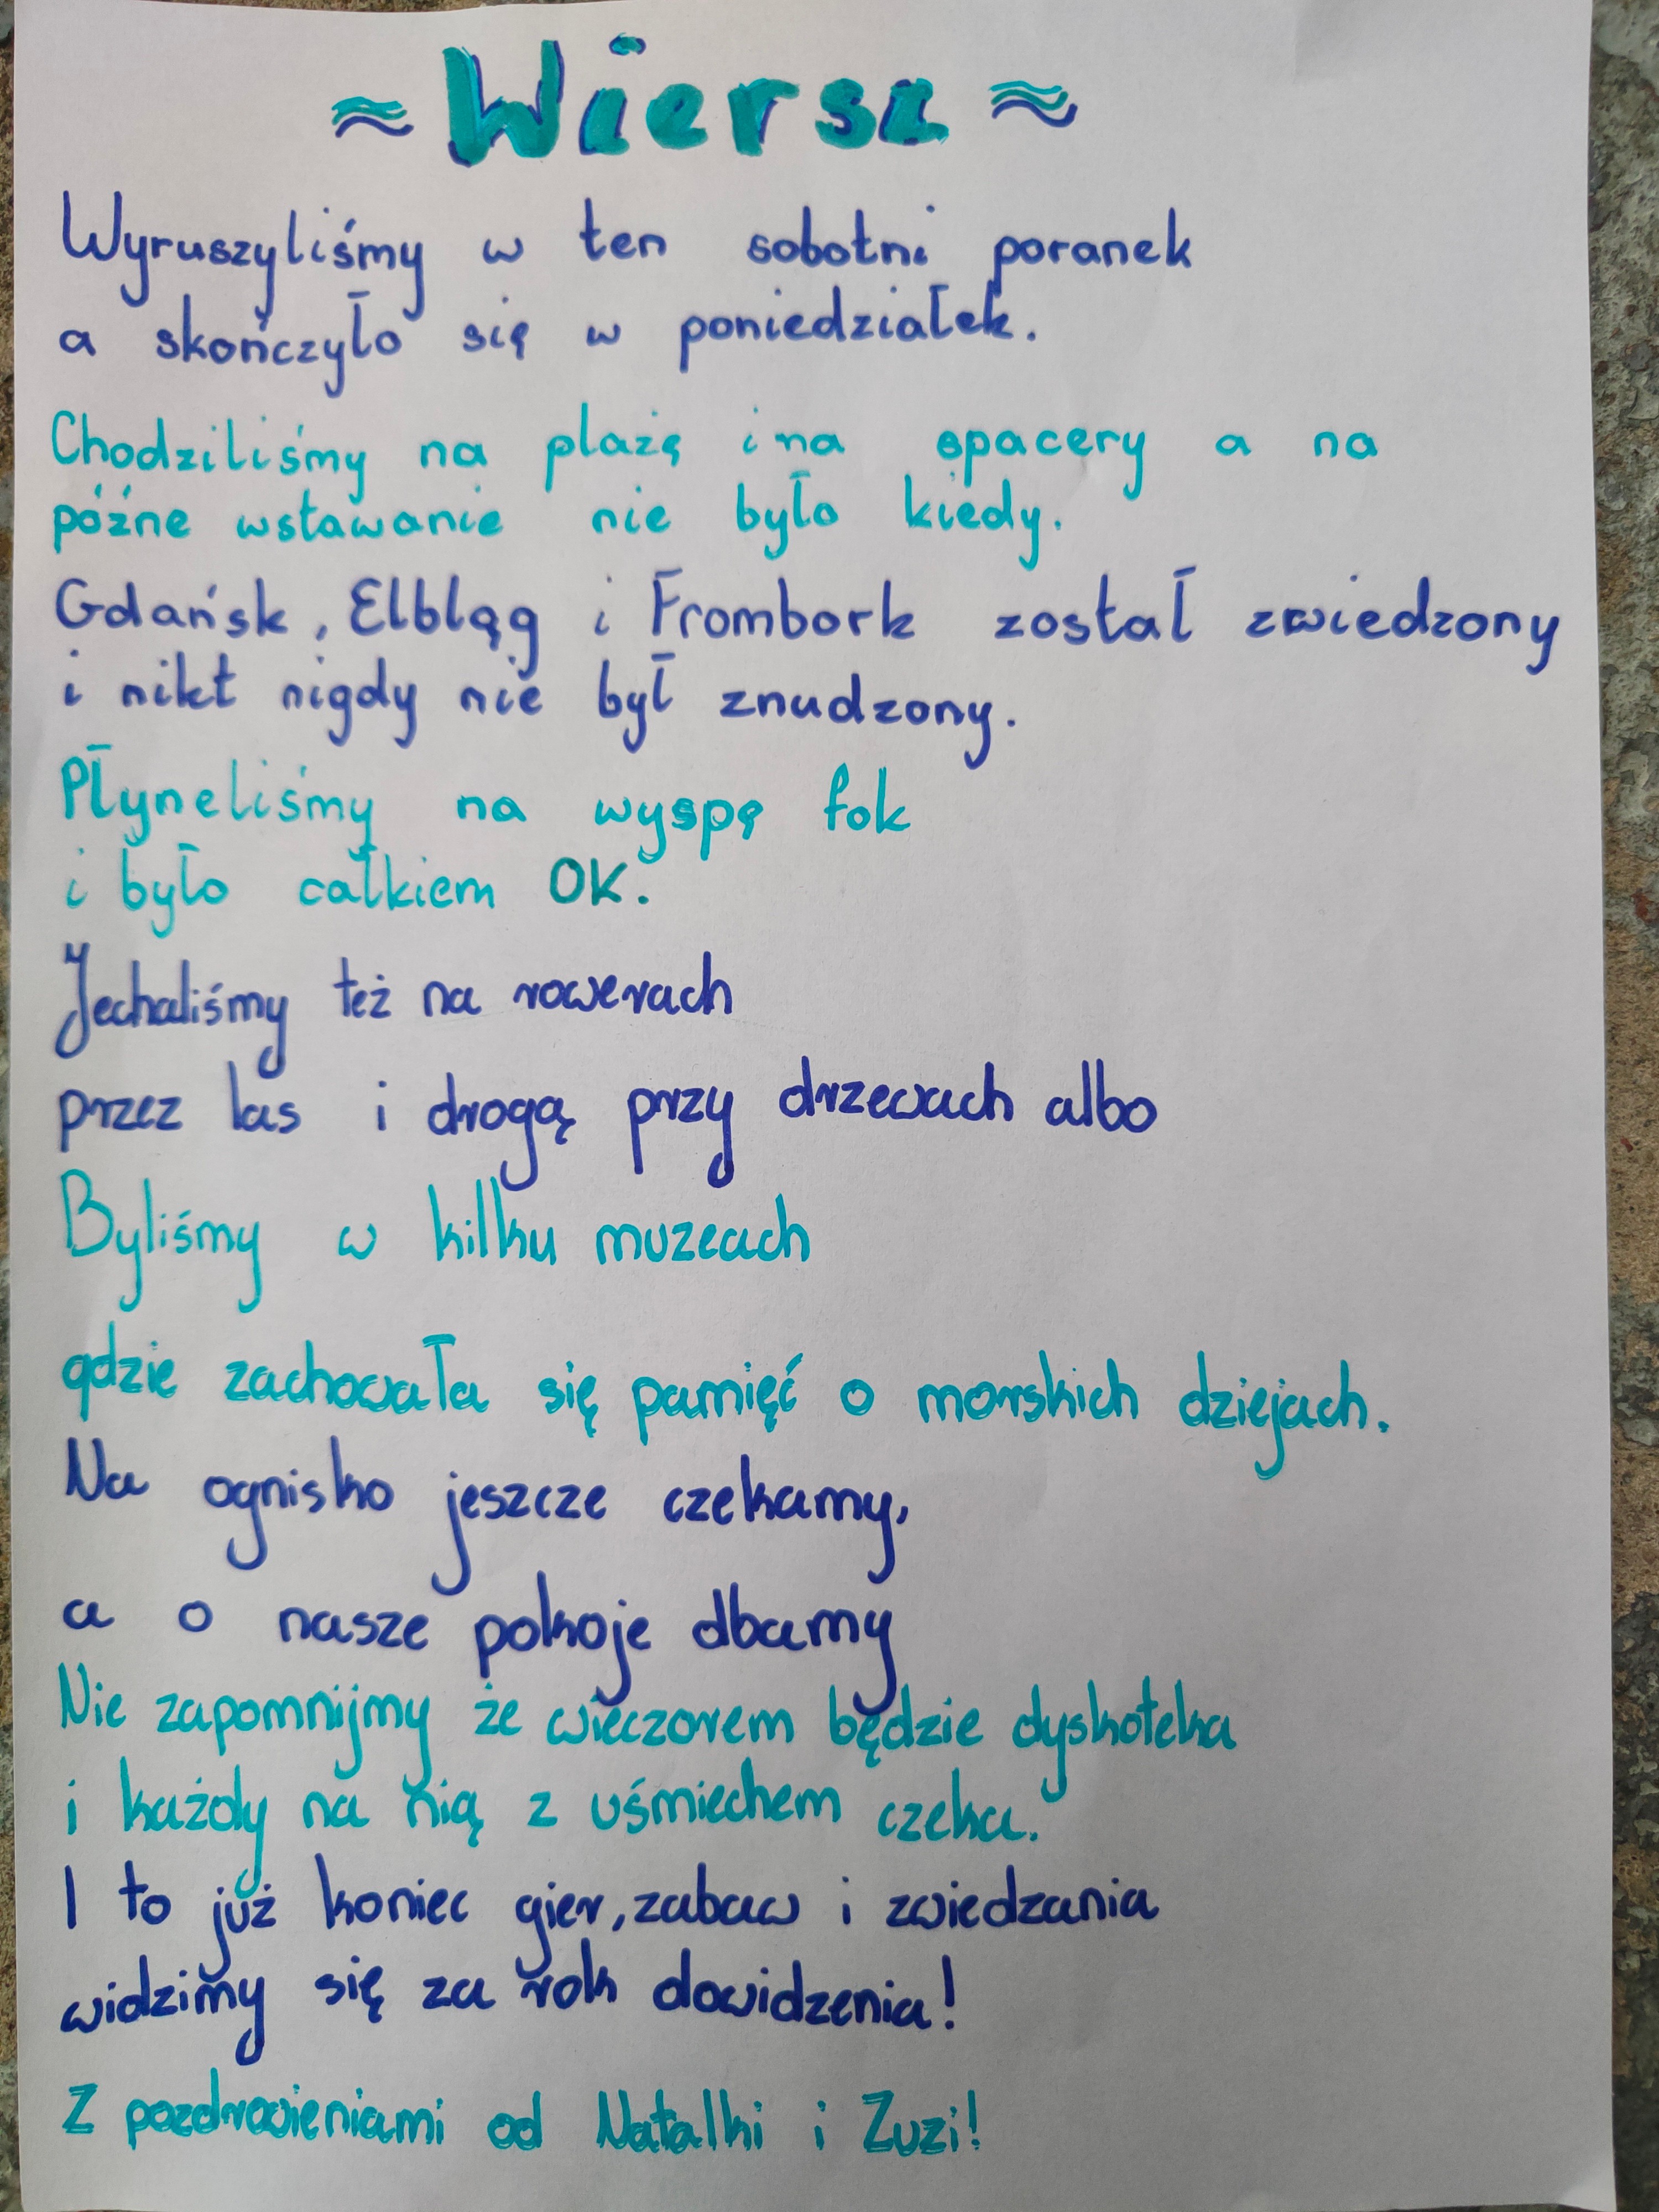 ≈ Wiersz ≈
Wyruszyliśmy w ten sobotni poranek
a skończyło się w poniedziałek.
Chodziliśmy na plażę i na spacery a na
późne wstawanie nie było kiedy.
Gdańsk, Elbląg i Frombork został zwiedzony
i nikt nigdy nie był znudzony.
Płyneliśmy na wyspę fok
i było całkiem OK.
Jechaliśmy też na rowerach
przez las i drogą przy drzewach albo
Byliśmy w kilku muzeach
gdzie zachowała się pamięć o morskich dziejach.
Na ognisko jeszcze czekamy,
a o nasze pokoje dbamy
Nie zapomnijmy że wieczorem będzie dyskoteka
i każdy na nią z uśmiechem czeka.
I to już koniec gier, zabaw i zwiedzania
widzimy się za rok dowidzenia!
Z pozdrowieniami od Natalki i Zuzi!